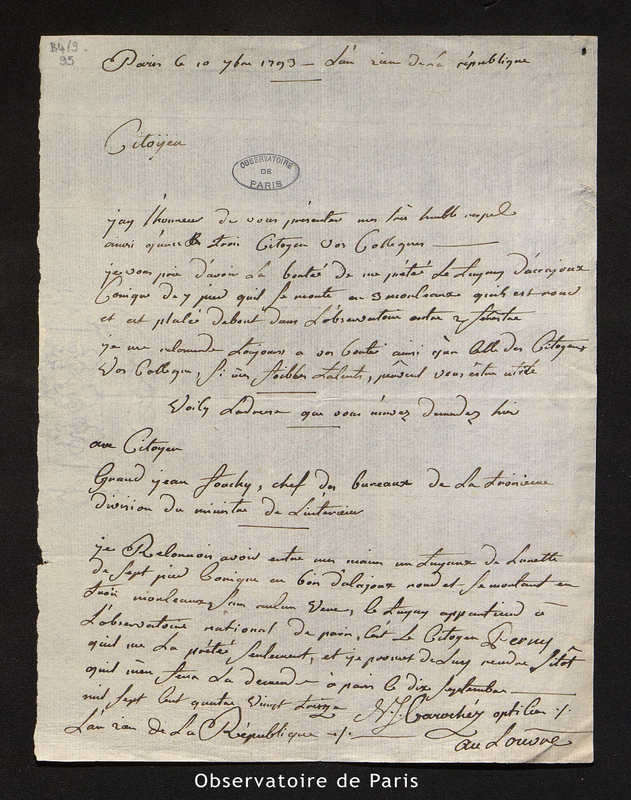 B4/9.
95
Paris le 10 7bre 1793 – L'an 2eme de la république
Citoyen
OBSERVATOIRE
DE
PARIS
jay l'honneur de vous présenter mes très humble respec
ainsi qu'aux trois Citoyen vos Collegues
je vous prie d'avoir la bonté de me prêté Le Tuyau d'accajoux
Conique de 7 pieu quil se monte en 3 morceaux quils est rond
et est plalé debout dans L'observatoire entre 2 fenetre
je me relomande toujours a vos bonté ainsi qua Celle des Citoyens
vos Collegue, si mes foibles talents, peuvent vous être utile
Voily Ladresse que vous m'avez demandez hier
au Citoyen
Grand jean fouchy, chef des bureaux de La troisieme
division du ministre de Linterieur
je Relonnois avoir entre mes mains un Tuyaux de Lunette
de sept pieu Conique en bois d'alajoux rond et se montant en
trois morleaux, sans aulun verre, le tuyau appartient à
L'observatoire national de paris, C'est Le Citoyen Perny
qui me La prêté seulement, et je promet de luy rendre sitôt
quil m'en fera La demande à paris le dix september
mil sept Cent quatre vingt treize N. J. Carochéz optilien ./.
L'an 2eme de La République ./.
au Louvre
Observatoire de Paris